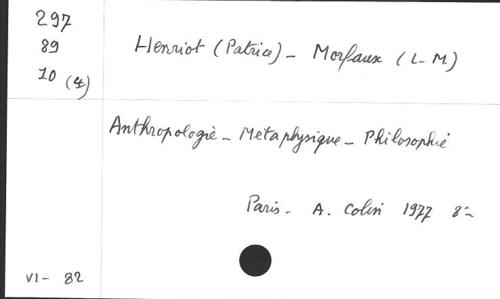 297
89
10 (4)
Henriot (Patrice) - Morfaux (L-M)
Anthropologie - Métaphysique - Philosophie
Paris - A. Colin 1977 8º
VI - 82